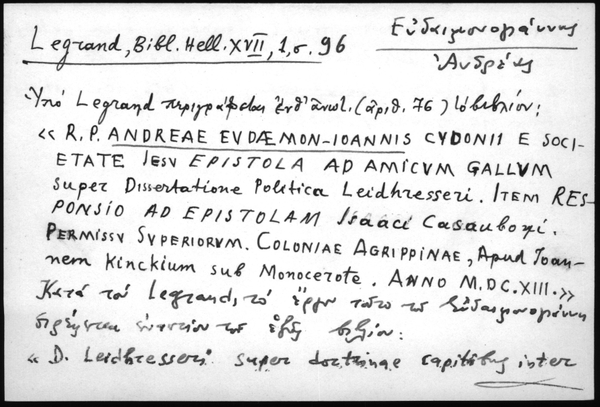 Legrand, Bibl. Hell. XVII, 1, σ. 96
Εὐδαιμονογιάννης
Ἀνδρέας
Ὑπὸ Legrand περιγράφεται ἐνθ' ἀνωτ. (ἀριθ. 76) τὸ βιβλίον:
« R. P. ANDREAE EVDÆMON-IOANNIS CYDONII E SOCI-
ETATE IESV EPISTOLA AD AMICVM GALLVM
super Dissertatione Politica Leidhresseri. ITEM RES-
PONSIO AD EPISTOLAM Isaaci Casauboni.
PERMISSV SVPERIORVM. COLONIAE AGRIPPINAE, Apud Joan-
nem Kinckium sub Monocerote. ANNO M.DC.XIII.»
Κατὰ τὸν Legrand, τὸ ἔργον τοῦτο τοῦ Εὐδαιμονογιάννη
στρέφεται ἐναντίον τοῦ ἑξῆς βιβλίου:
« D. Leidhresseri super doctrinae capitibus inter